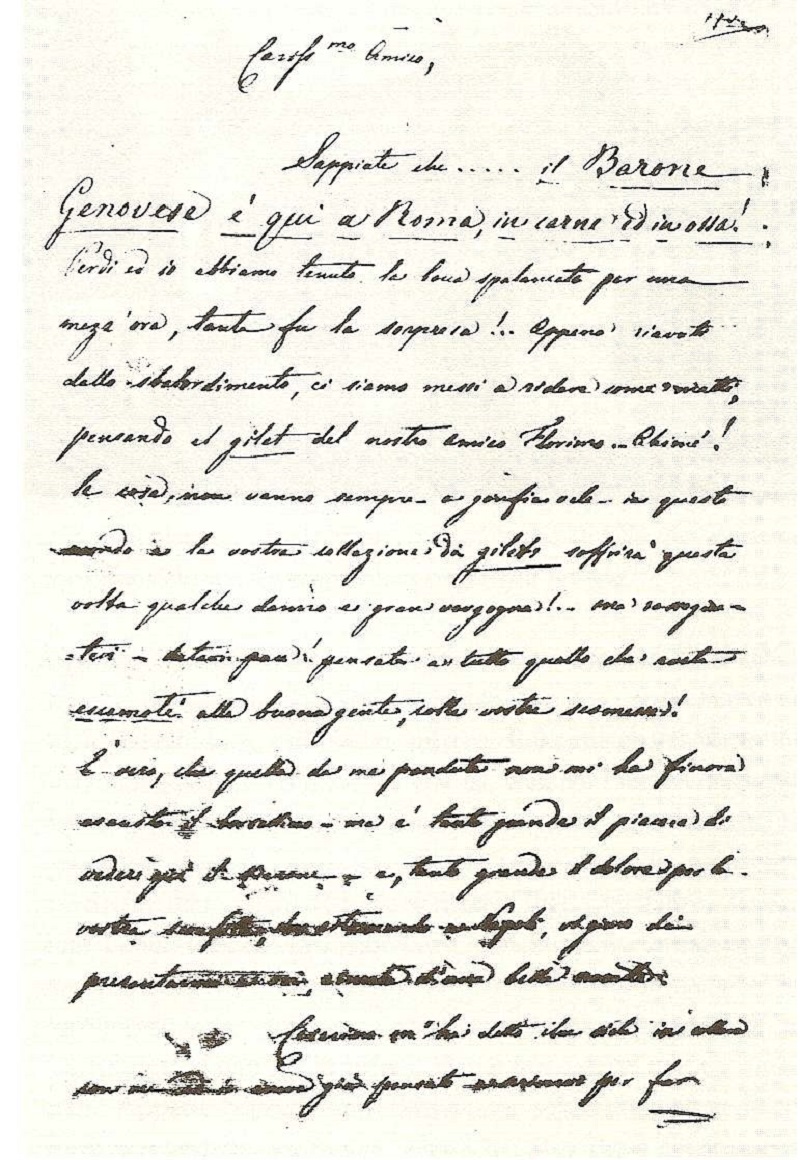 Cariss.mo Amico,
Sappiate che ..... il Barone
Genovese è qui a Roma, in carne ed in ossa!
Verdi ed io abbiamo tenuto la boca spalancata per una
mezz'ora, tanta fu la sorpresa!.. Appena riavuti
dallo sbalordimento, ci siamo messi a ridere come matti,
pensando al gilet del nostro amico Florimo.. Ahimé!
le cose, non vanno sempre a gonfie vele in questo
mondo e la vostra collezione di gilets soffrirà questa
volta qualche danno e gran vergogna!.. ma rassegna-
-tevi - datevi pace! pensate a tutto quello che avete
escamoté alla buona gente, colle vostre scomesse!
È vero, che quella da me perduta non mi ha finora
il borsellino - ma è tanto grande il piacere di
vedere qui il Barone - e, tanto grande il dolore per la
vostra che a Napoli,
presentarmi a voi, d'una bella
Cesarino m'ha detto che
già pensato per far